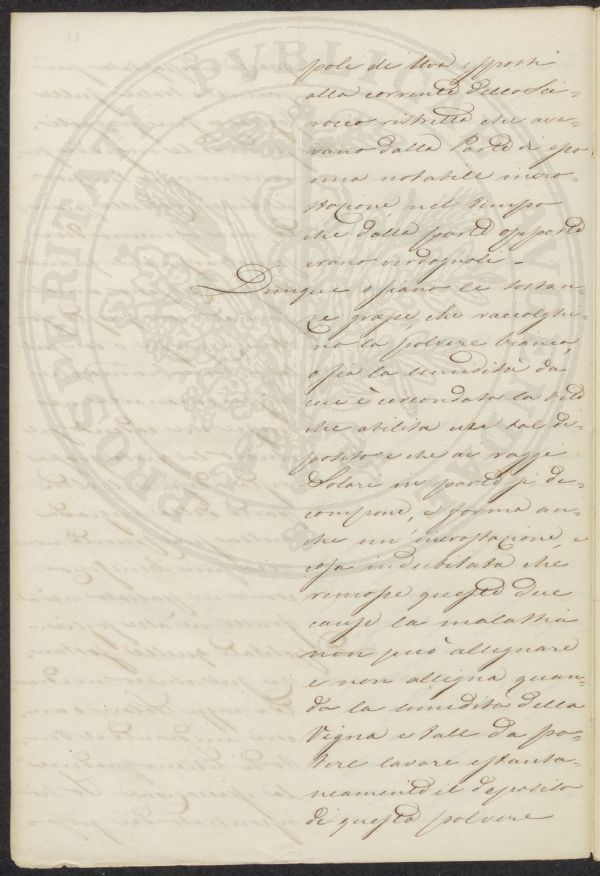 pole di Uva esposti
alla corrente dello Sci-
rocco ristretta che ave-
vano dalla Parte di epo
una notabile incro-
stazione nel tempo
che dalla parte opposta
erano verdognole. -
Dunque o siano le sostan-
ze grasse, che raccolghi-
no la polvere bianca,
o sia la umidità da
cui è circondata la vite
che abilita un tal di-
posito e che ai raggi
Solari in parte si de-
compone, e forma an-
che un'incrostazione, è
cosa indubitata che
remosse queste due
cause la malattia
non può allignare
e non alligna quan-
do la umidità della
Vigna è tale da po-
tere lavare istanta-
neamente il deposito
di questa polvere
PROSPERITATI PVBLICAE AVGENDAE